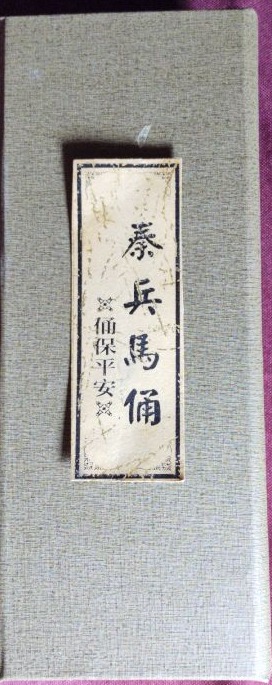 秦兵馬俑
俑保平安